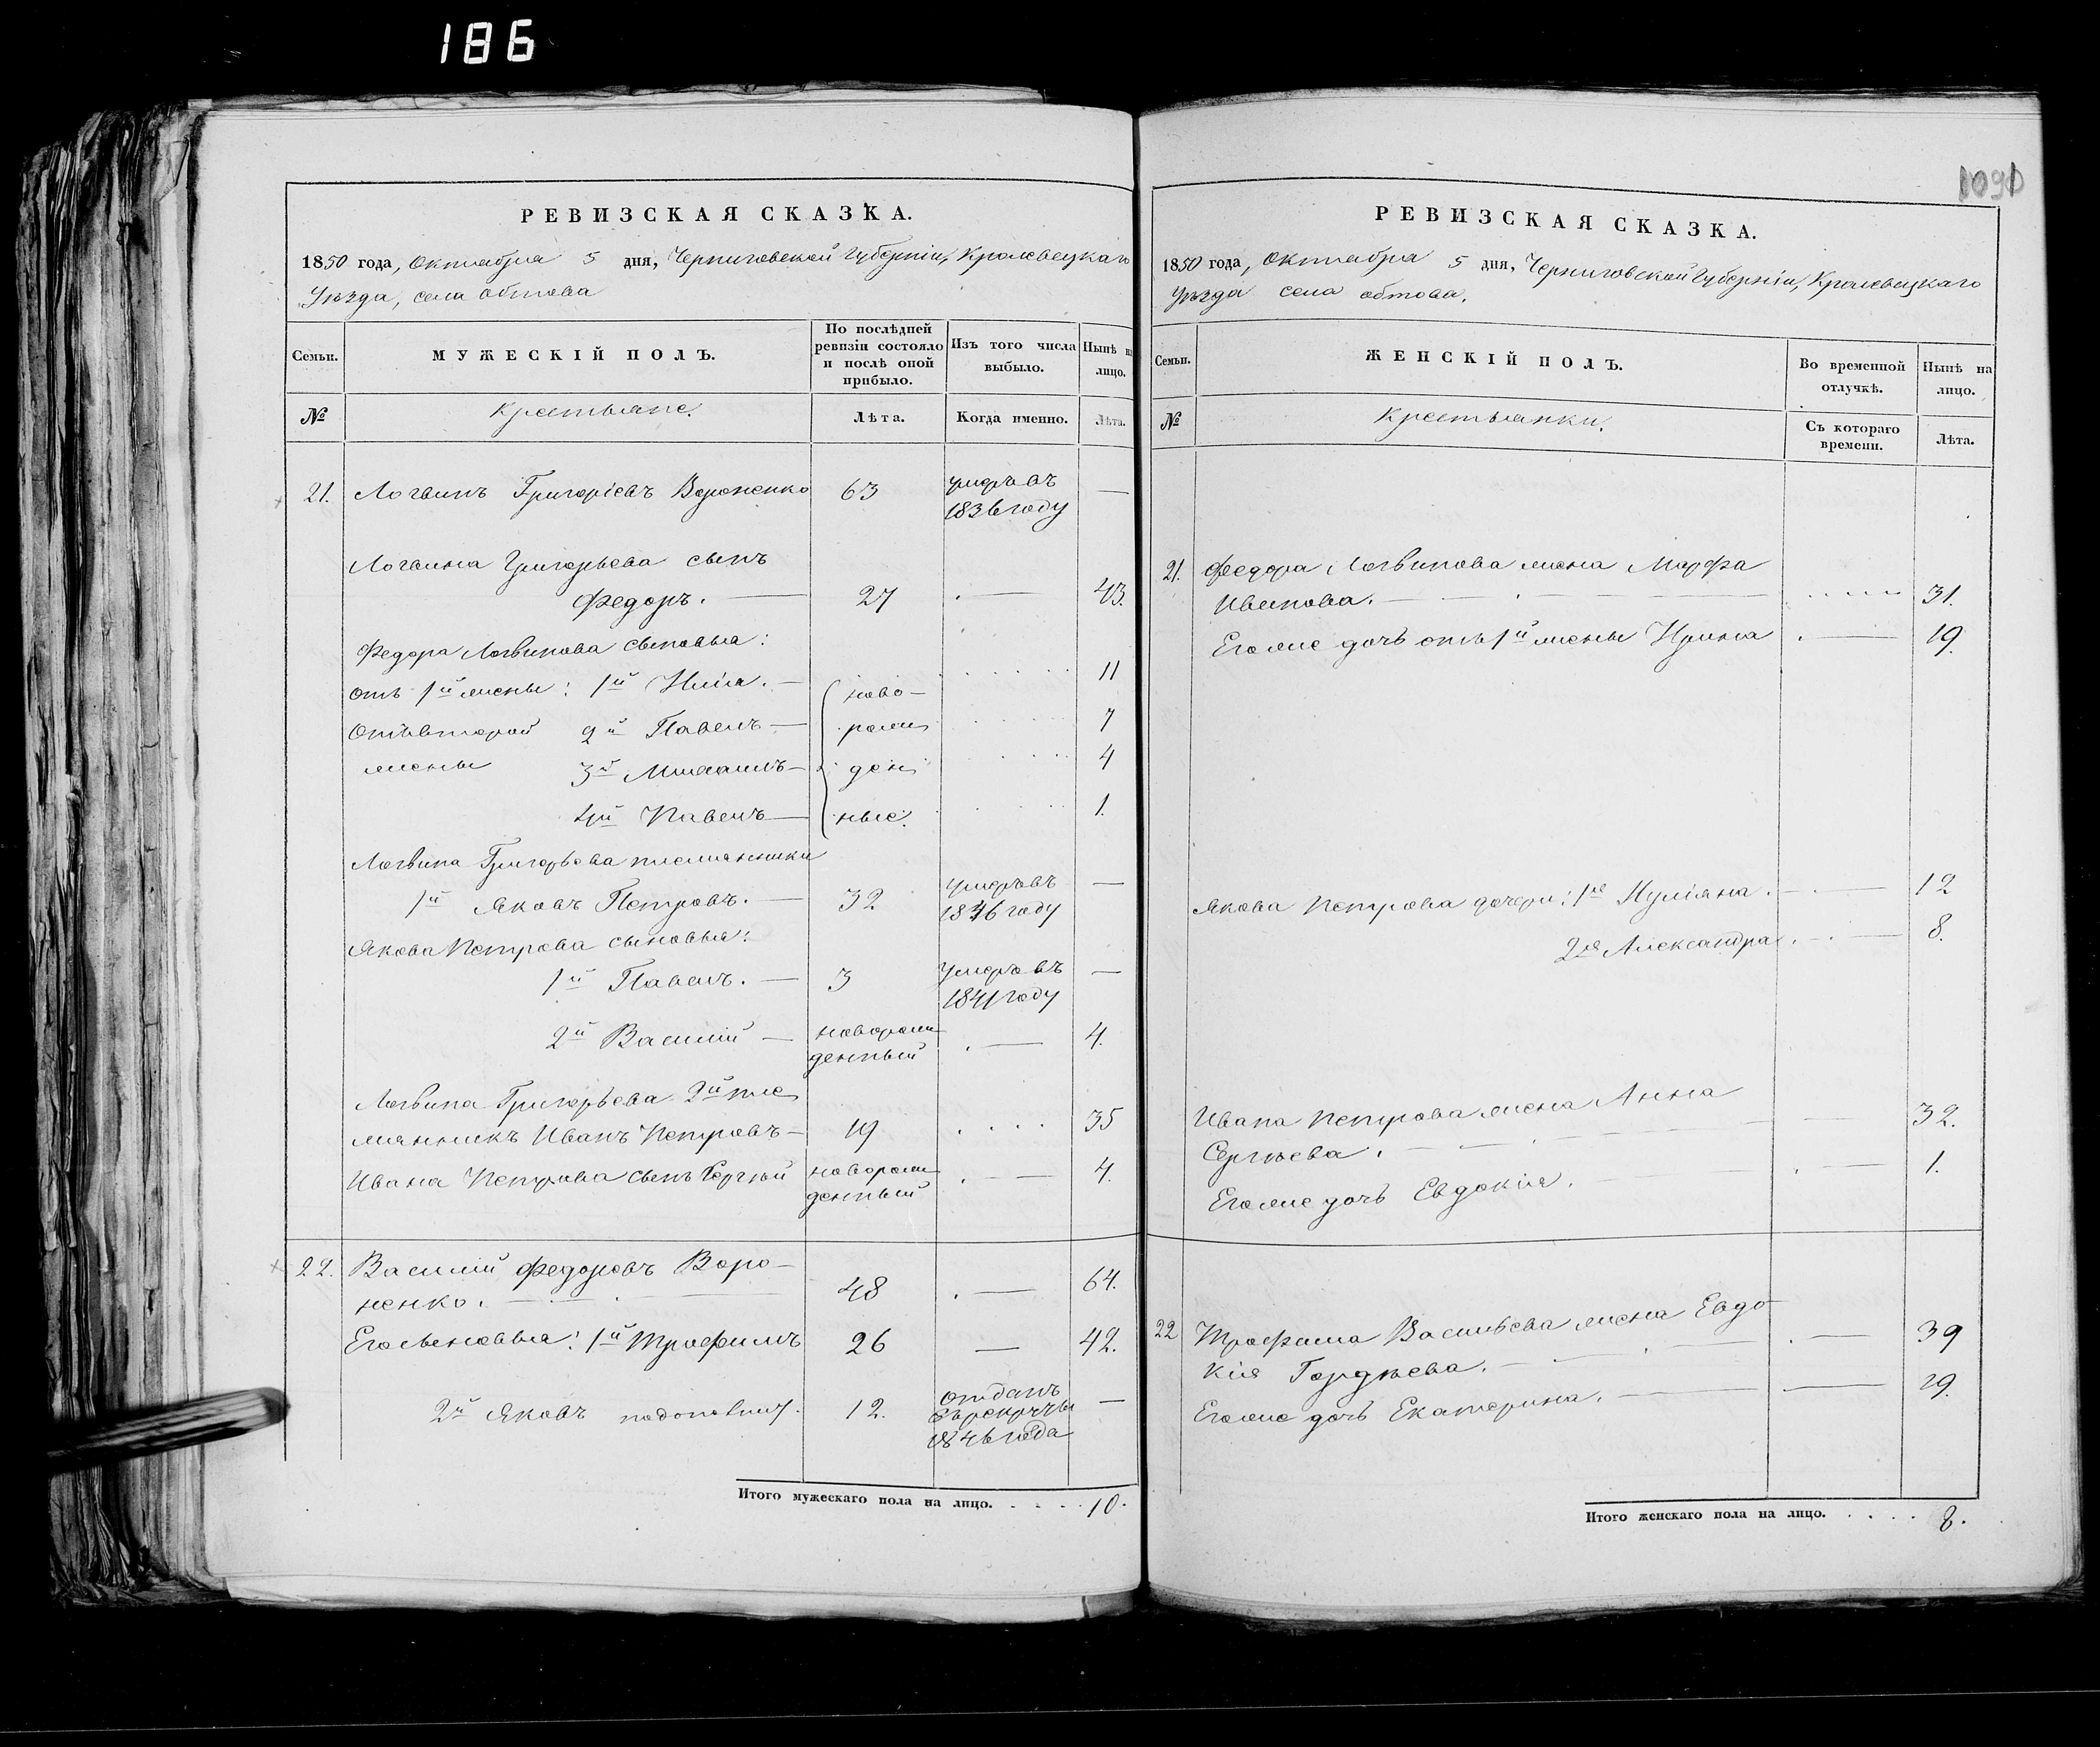 186
РЕВИЗСКАЯ СКАЗКА.
1850 года, Октября 5 дня, Черниговской Губерніи, Кролевецкаго
Уѣзда, села Обтова
Семьи.
МУЖЕСКІЙ ПОЛЪ.
По послѣдней ревизіи состояло и послѣ оной прибыло.
Изъ того числа выбыло.
Нынѣ на лицо.
№
Крестьяне.
Лѣта.
Когда именно.
Лѣта.
21. Логвинъ Григорієвъ Вороненко 63 умръ въ —
1836 году
Логвина Григорьева сынъ
Федоръ. — 27 . — 43.
Федора Логвинова сыновья:
отъ 1й жены: 1й Илія. — ново- 11
Отъ второй 2й Павелъ — рож 7
жены 3й Михаилъ — ден 4
4й Павелъ — ные. 1.
Логвина Григорьева племянники
1й Яковъ Петровъ. — 32 умръ въ —
1846 году
Якова Петрова сыновья:
1й Павелъ. — 3 Умръ въ —
1841 году
2й Василій — новорож . — 4.
денный
Логвина Григорьева 2й пле
мянникъ Иванъ Петровъ — 19 . . . . 35
Ивана Петрова сынъ Сергѣй новорож . — 4.
денный
22. Василій Федоровъ Воро-
ненко. — 48 . — 64.
Его сыновья: 1й Трофимъ 26 — 42.
2й Яковъ 12. отданъ —
въ рекруты
1846 года
Итого мужескаго пола на лицо. . . . . 10.
1090
РЕВИЗСКАЯ СКАЗКА.
1850 года, Октября 5 дня, Черниговской Губерніи, Кролевецкаго
Уѣзда села Обтова.
Семьи.
ЖЕНСКІЙ ПОЛЪ.
Во временной отлучкѣ.
Нынѣ на лицо.
№
Крестьянки.
Съ котораго времени.
Лѣта.
21. Федора Логвинова жена Марфа
Иванова. — 31.
Его же дочь отъ 1й жены Ирина . — 19.
Якова Петрова дочери: 1я Иуліяна. — 12
2я Александра. — 8.
Ивана Петрова жена Анна
Сергѣева. — 32.
Его же дочь Евдокія. . — 1.
22 Трофима Васильева жена Евдо
кія Гордѣева. — . — 39
Его же дочь Екатерина. — 19.
Итого женскаго пола на лицо. . . . . 8.